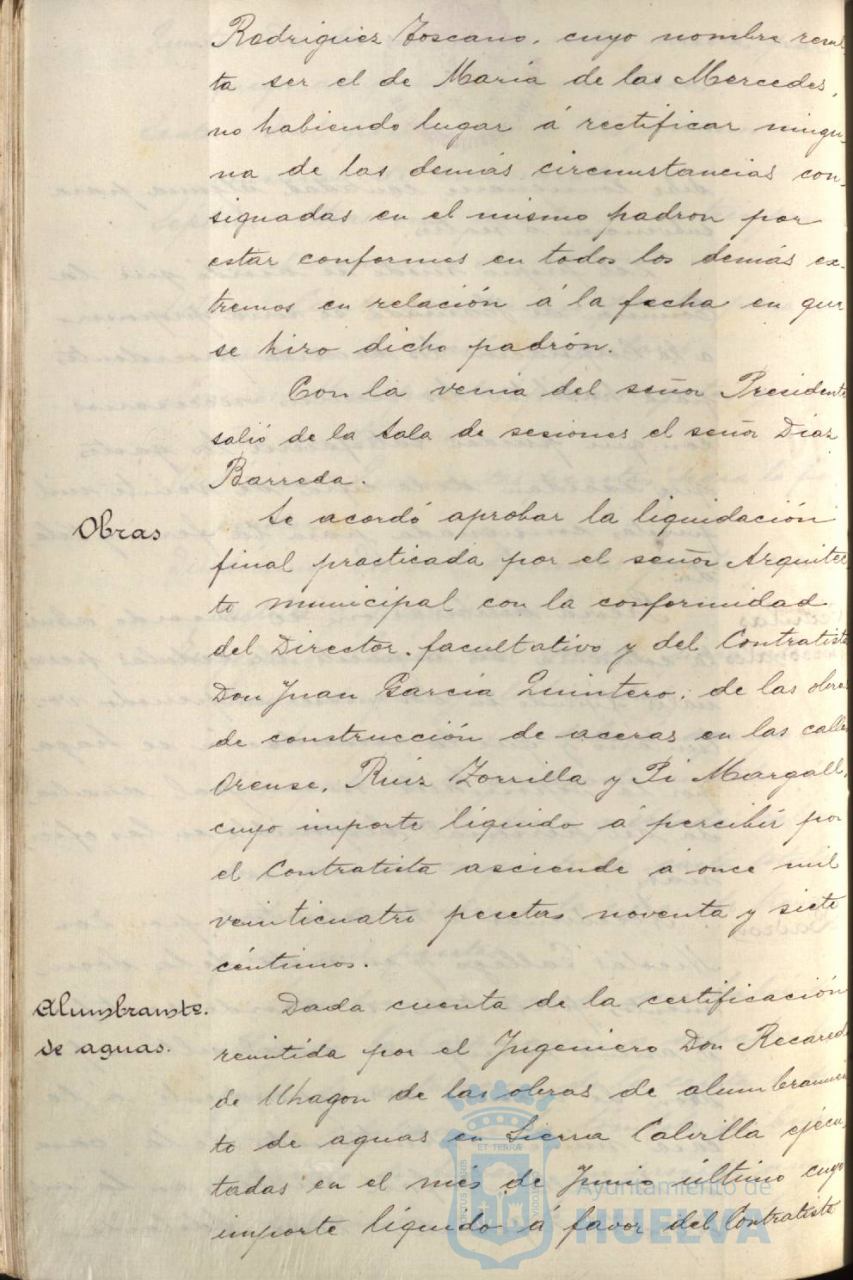 Rodriguez Toscano, cuyo nombre resul-
ta ser el de Maria de las Mercedes,
no habiendo lugar á rectificar ningu-
na de las demás circunstancias con-
signadas en el mismo padron por
estar conformes en todos los demás ex-
tremos en relación á la fecha en que
se hizo dicho padrón.
Con la venia del señor Presidente
salió de la Sala de sesiones el señor Diaz
Barreda.
Obras
Se acordó aprobar la liquidación
final practicada por el señor Arquitec-
to municipal con la conformidad
del Director facultativo y del Contratista
Don Juan Garcia Quintero, de las obras
de construcción de aceras en las calles
Orense, Ruiz Zorrilla y Pi Margall,
cuyo importe liquido á percibir por
el Contratista asciende á once mil
veinticuatro pesetas noventa y siete
céntimos.
Alumbramto.
de aguas.
Dada cuenta de la certificación
remitida por el Ingeniero Don Recaredo
de Uhagon de las obras de alumbramien-
to de aguas en Sierra Calvilla ejecu-
tadas en el mes de Junio último cuyo
importe liquido á favor del Contratista
Ayuntamiento de
HUELVA